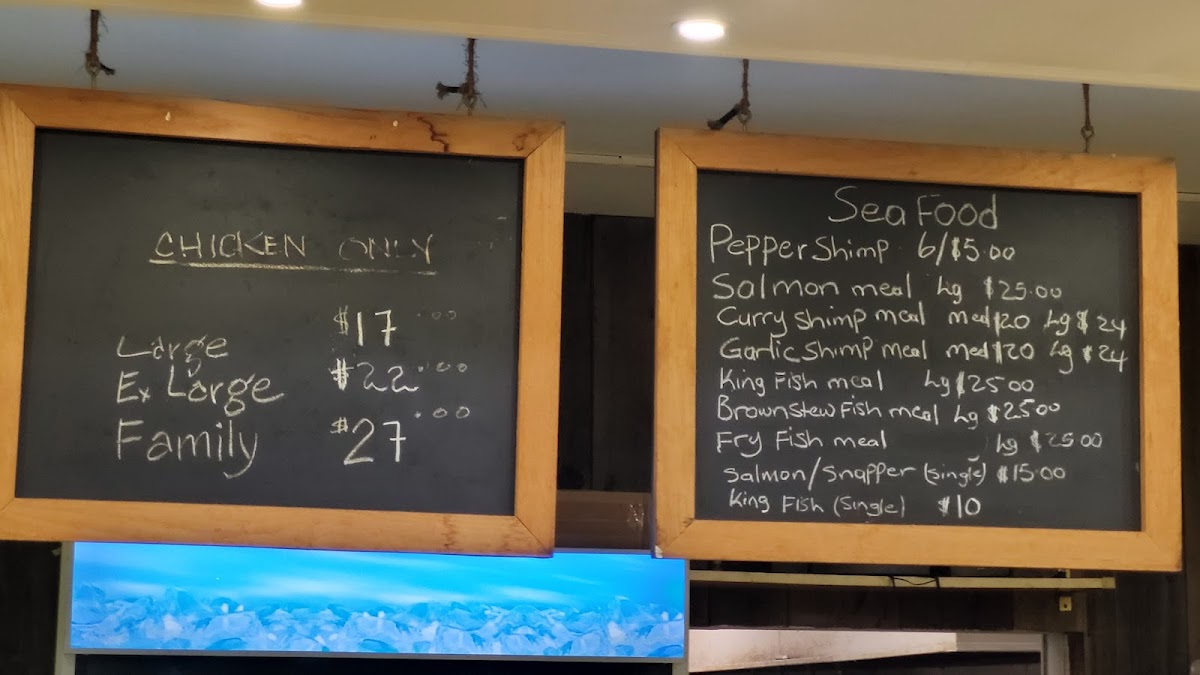 CHICKEN ONLY
Large $17.00
Ex Large $22.00
Family $27.00
Sea Food
Pepper Shimp 6/$5.00
Salmon meal Lg $25.00
Curry Shimp meal med $20 Lg $24
Garlic Shimp meal med $20 Lg $24
King Fish meal Lg $25.00
Brown Stew Fish meal Lg $25.00
Fry Fish meal Lg $25.00
Salmon/Snapper (single) $15.00
King Fish (Single) $10